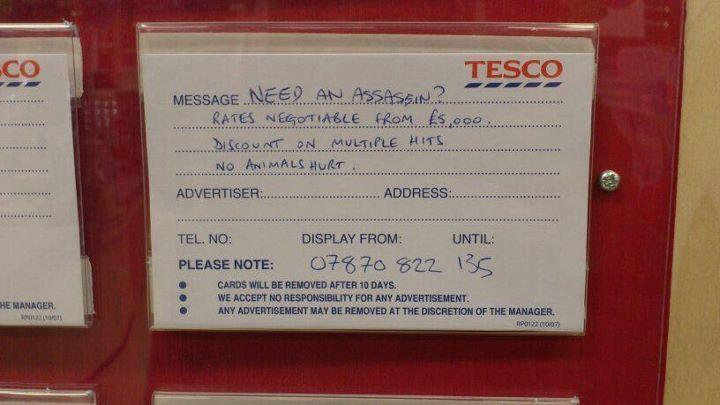 SCO
TESCO
MESSAGE NEED AN ASSASSIN?
RATES NEGOTIABLE FROM £5,000.
DISCOUNT ON MULTIPLE HITS
NO ANIMALS HURT.
ADVERTISER: ADDRESS:
TEL. NO: DISPLAY FROM: UNTIL:
PLEASE NOTE: 07870 822 135
● CARDS WILL BE REMOVED AFTER 10 DAYS.
● WE ACCEPT NO RESPONSIBILITY FOR ANY ADVERTISEMENT.
● ANY ADVERTISEMENT MAY BE REMOVED AT THE DISCRETION OF THE MANAGER.
RP0122 (10/07)
HE MANAGER.
RP0122 (10/07)